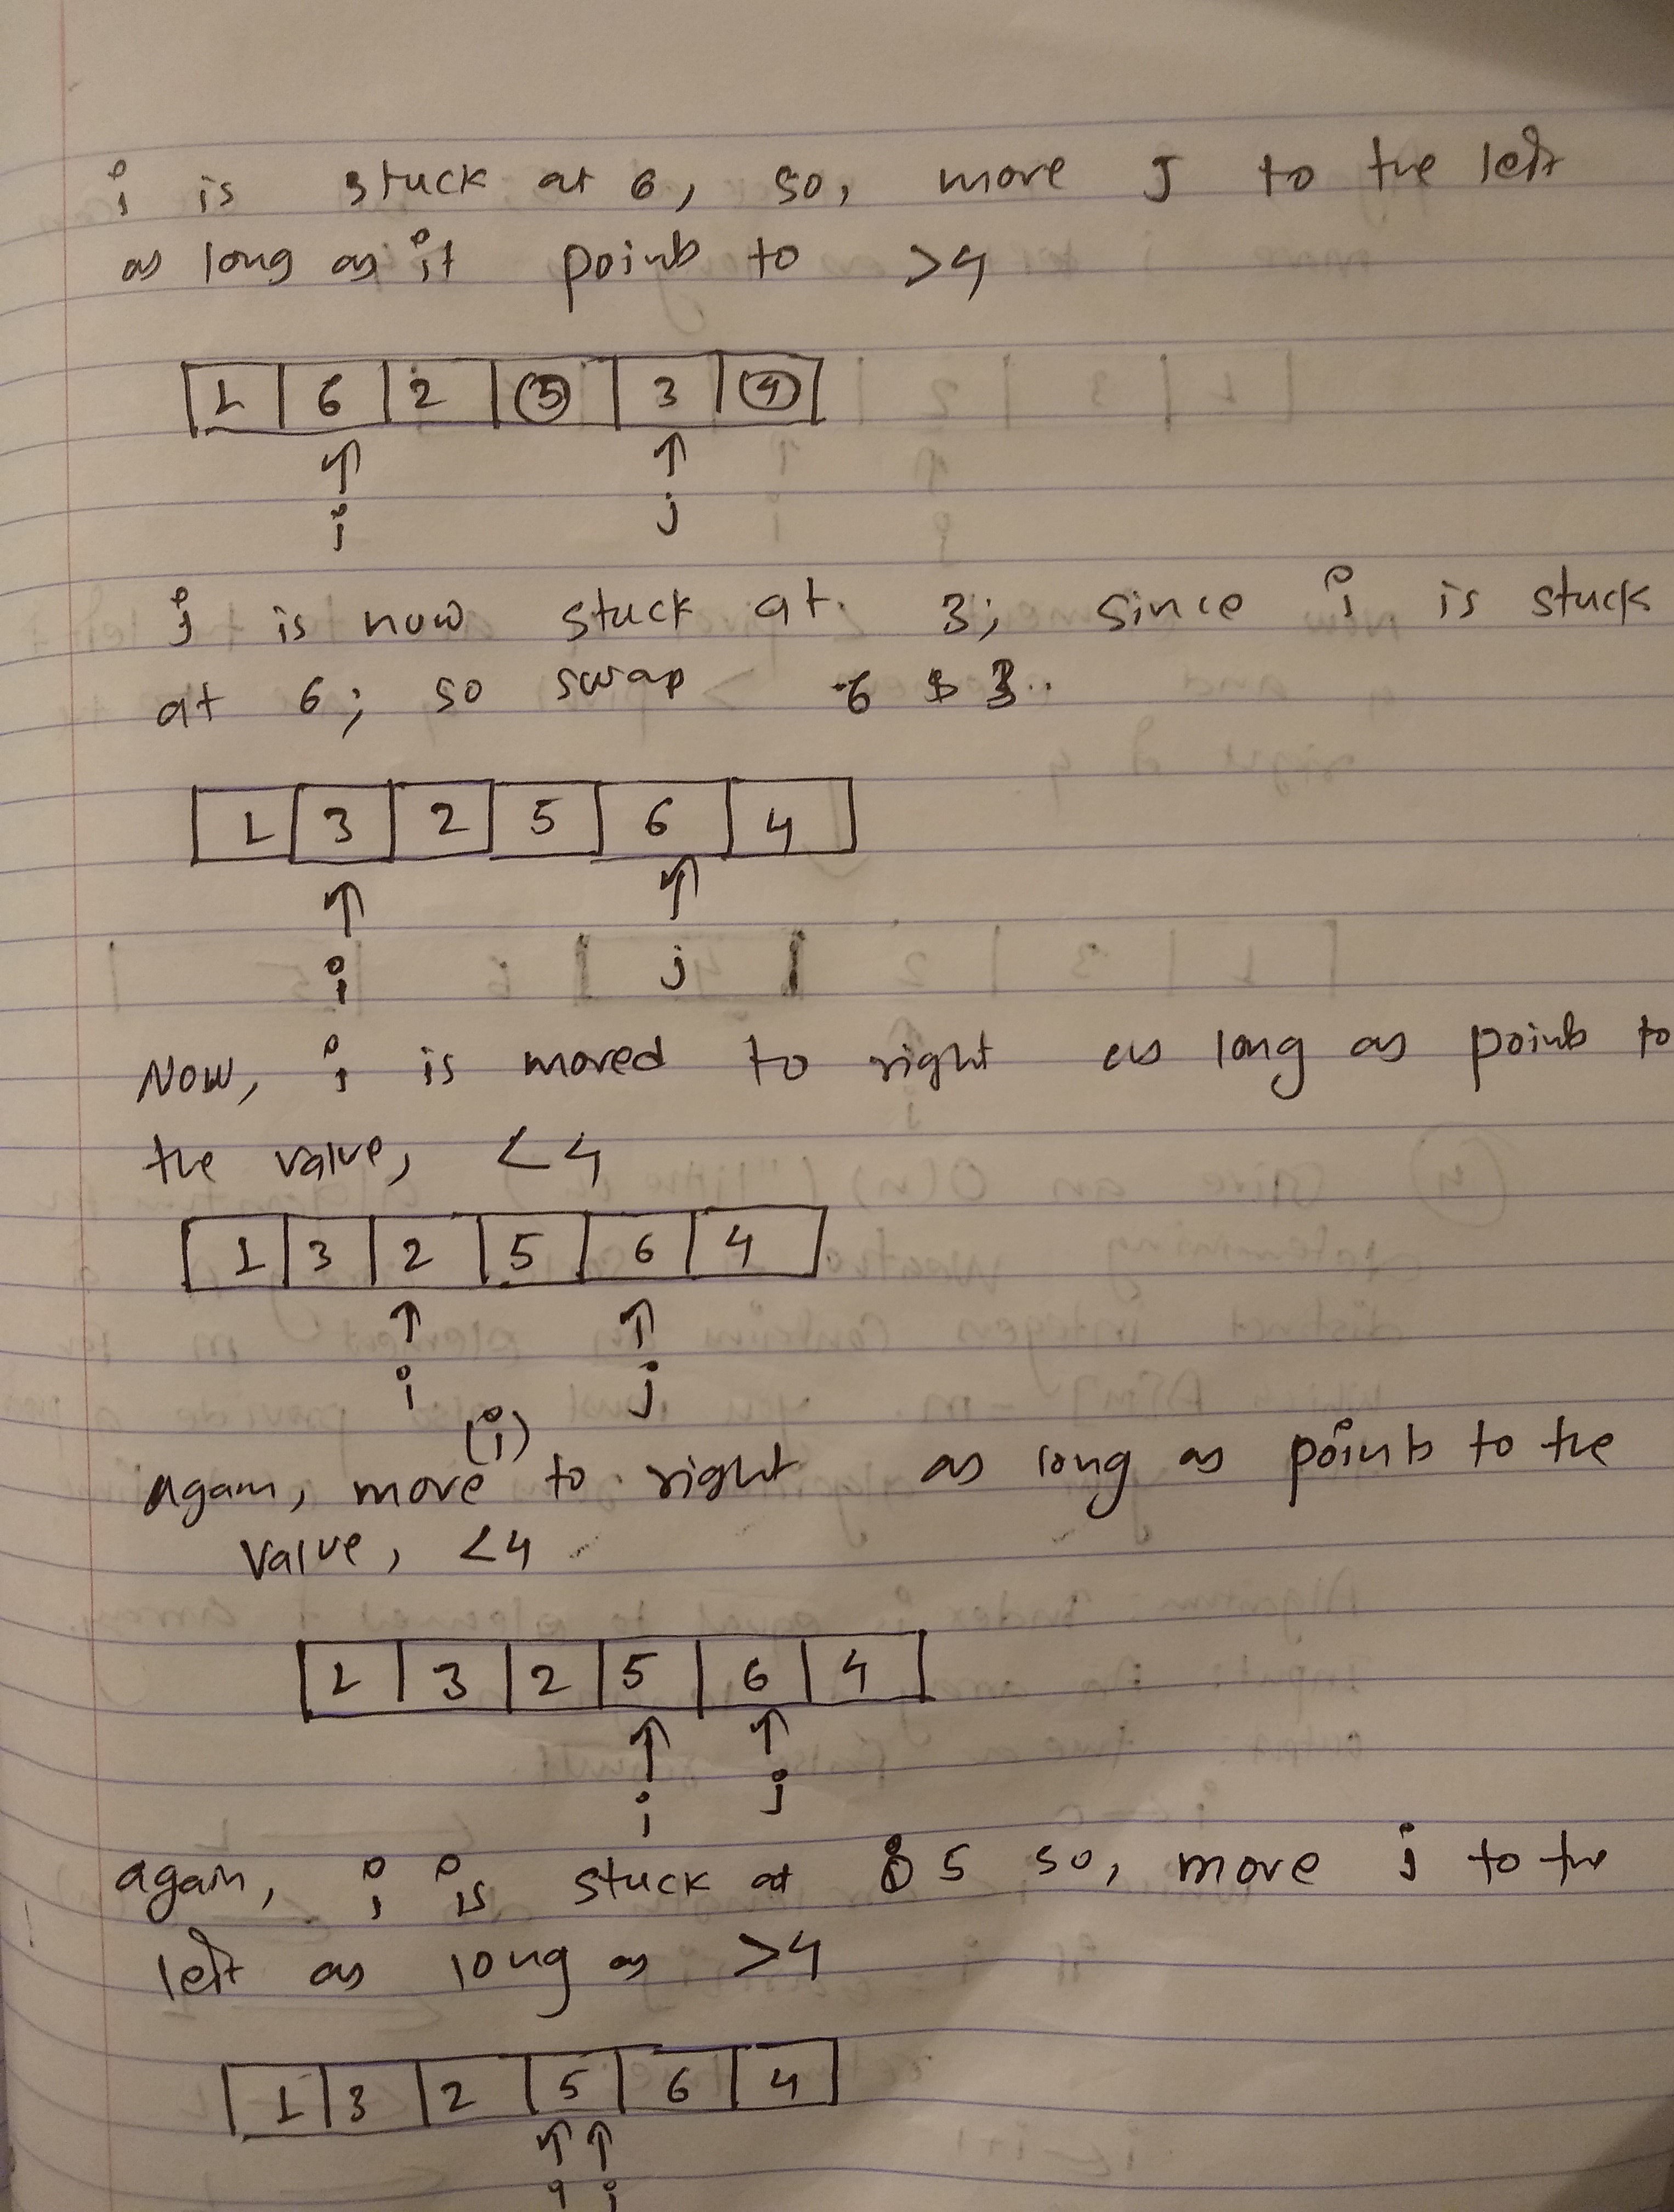 i is stuck at 6, so, move J to the left
as long as it points to >4
1 6 2 5 3 4
i j
j is now stuck at 3; since i is stuck
at 6; so swap 6 & 3.
1 3 2 5 6 4
i j
Now, i is moved to right as long as points to
the value, <4
1 3 2 5 6 4
i j
(i)
again, move to right as long as points to the
value, <4
1 3 2 5 6 4
i j
again, i is stuck at 5 so, move j to the
left as long as >4
1 3 2 5 6 4
i j